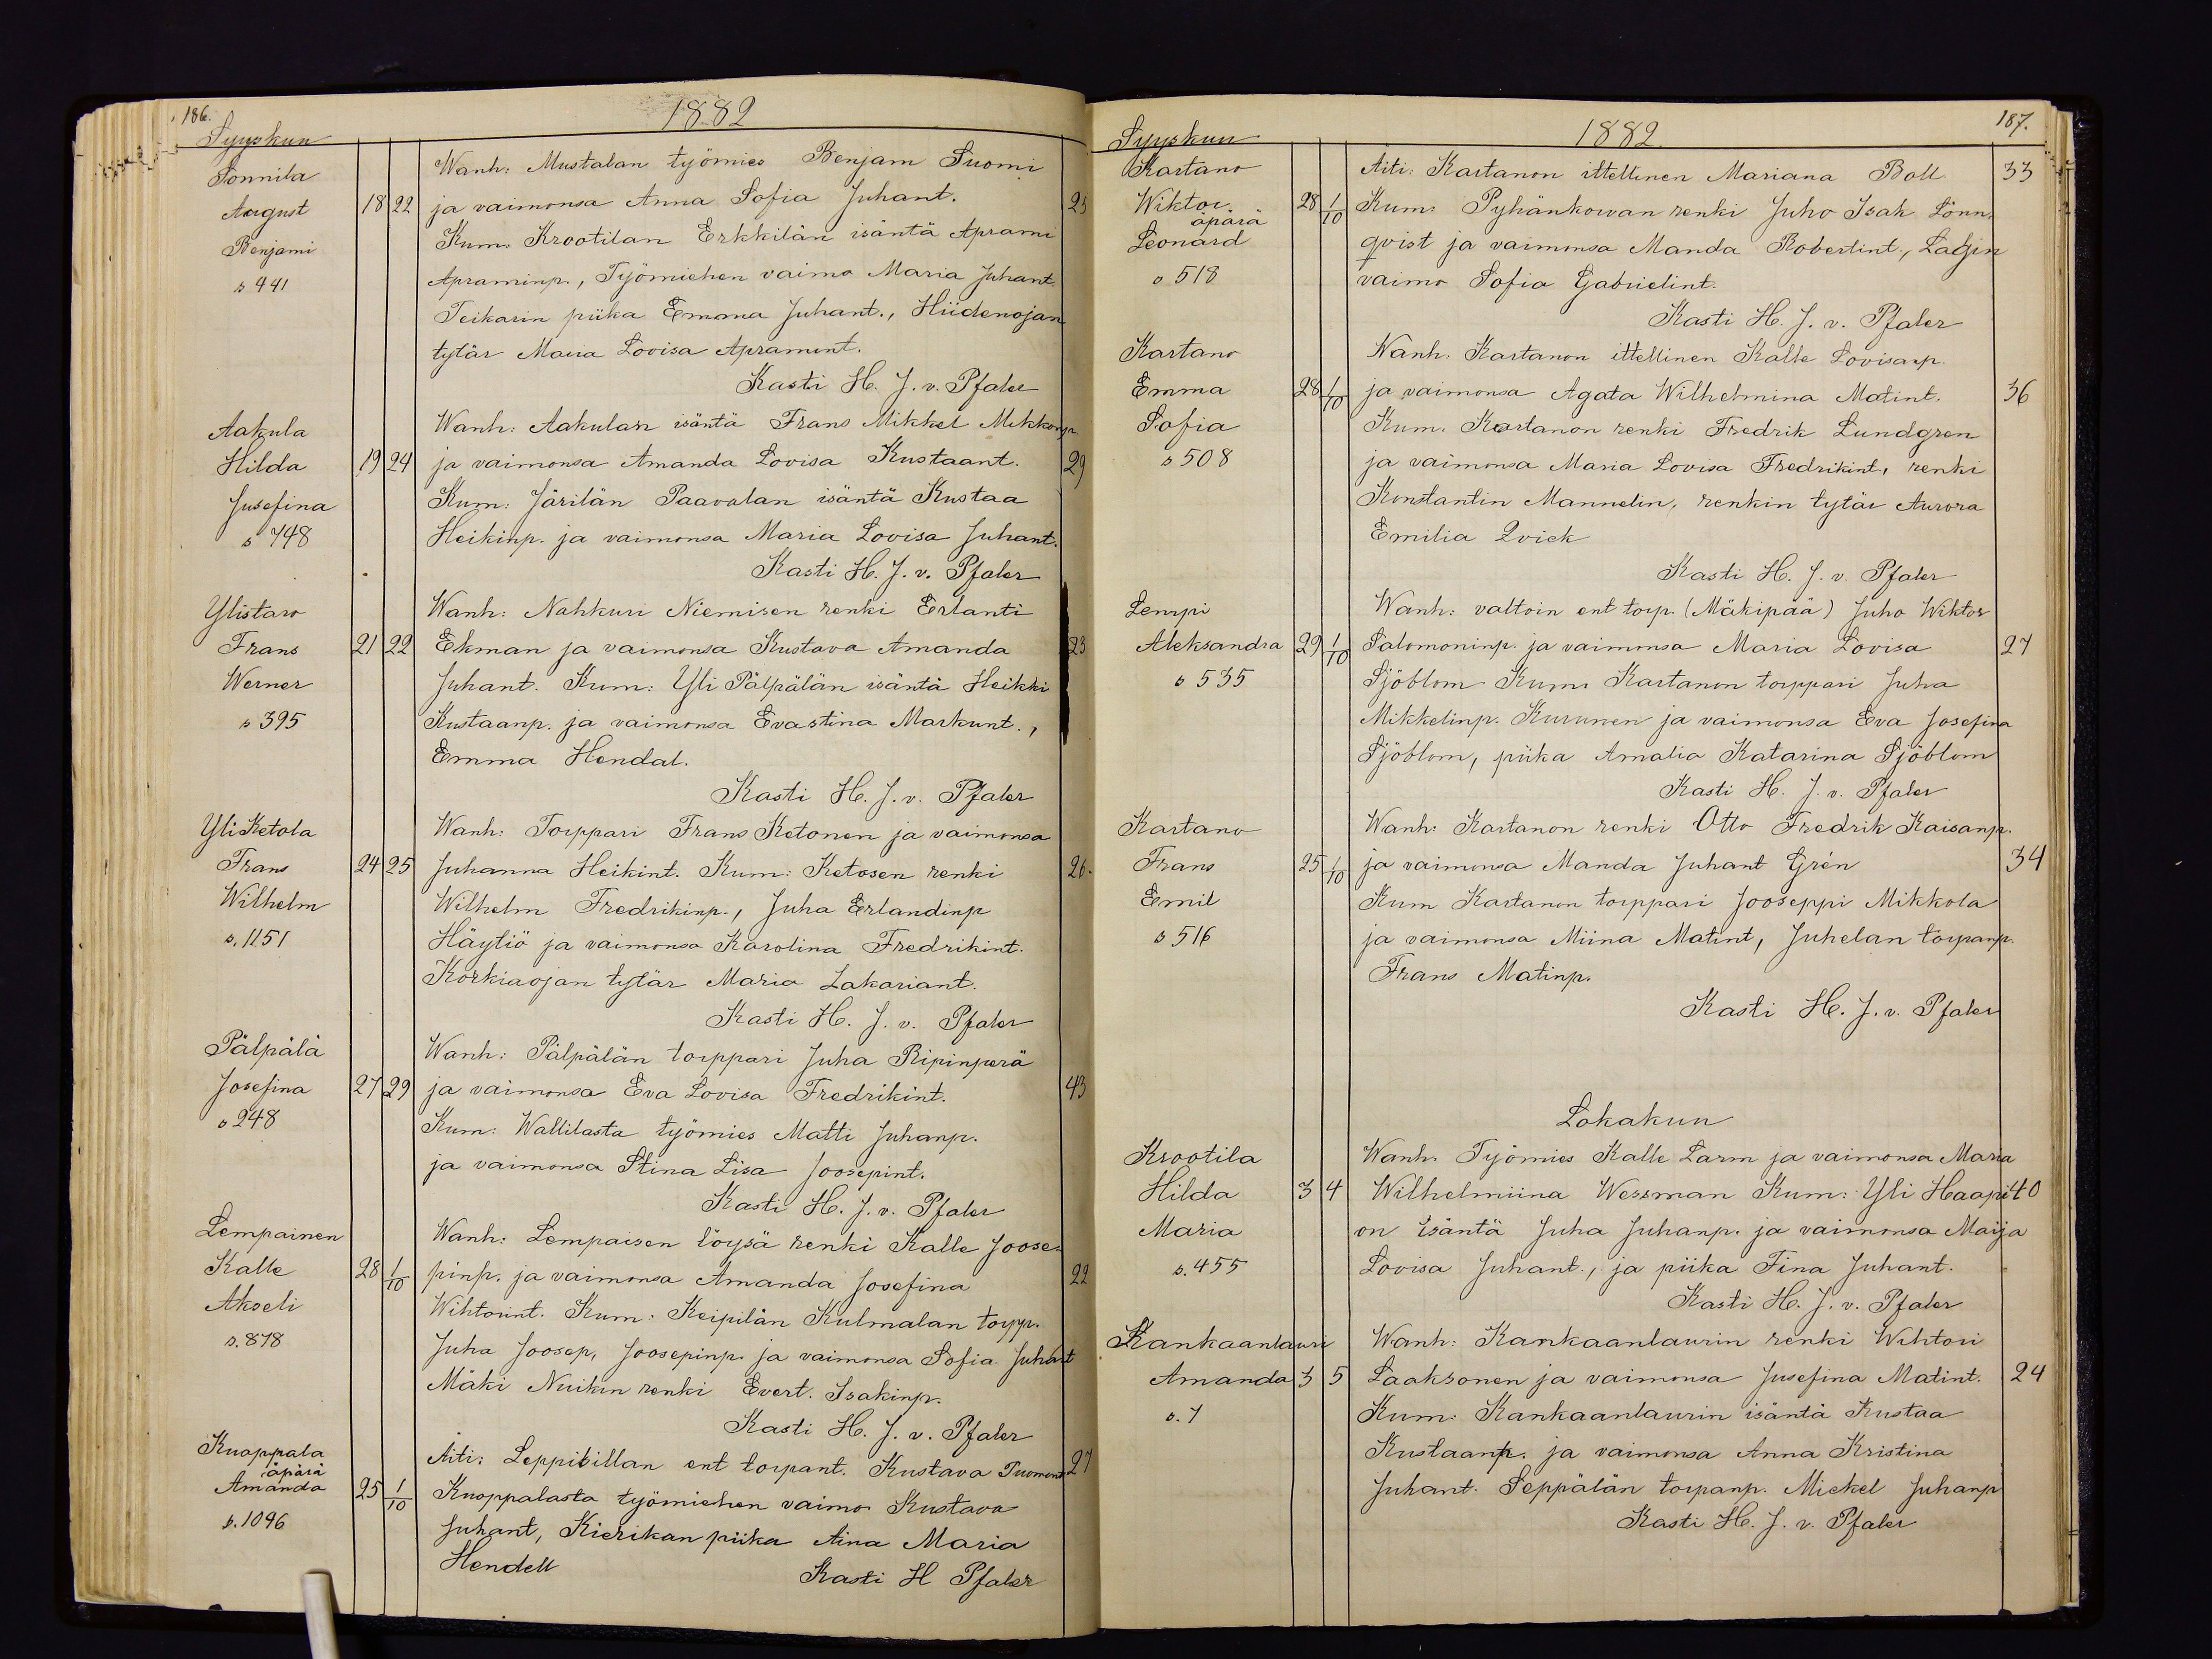 186.
1882
Syyskun
Sonnila Wanh: Mustalan työmies Benjam Suomi
August 18 22 ja vaimonsa Anna Sofia Juhant. 23
Benjami Kum. Krootilan Erkkilän isäntä Aprami
s 441 Apraminp., Työmiehen vaimo Maria Juhant.
Teikarin piika Emma Juhant., Hiidenojan
tytär Maria Lovisa Apramint.
Kasti H. J. v. Pfaler
Aakula Wanh: Aakulan isäntä Frans Mikkel Mikkonp.
Hilda 19 24 ja vaimonsa Amanda Lovisa Kustaant. 29
Jusefina Kum: Järilän Paavolan isäntä Kustaa
s 748 Heikinp. ja vaimonsa Maria Lovisa Juhant.
Kasti H. J. v. Pfaler
Ylistaro Wanh: Nahkuri Niemisen renki Erlanti
Frans 21 22 Ekman ja vaimonsa Kustava Amanda 23
Werner Juhant. Kum: Yli Pälpälän isäntä Heikki
s 395 Kustaanp. ja vaimonsa Evastina Markunt.,
Emma Hendal.
Kasti H. J. v. Pfaler
Yli Ketola Wanh: Torppari Frans Ketonen ja vaimonsa
Frans 24 25 Juhanna Heikint. Kum: Ketosen renki 26.
Wilhelm Wilhelm Fredrikinp., Juha Erlandinp
s. 1151 Häytiö ja vaimonsa Karolina Fredrikint.
Korkiaojan tytär Maria Sakariant.
Kasti H. J. v. Pfaler
Pälpälä Wanh: Pälpälän torppari Juha Ripinperä
Josefina 27 29 ja vaimonsa Eva Lovisa Fredrikint. 43
s 248 Kum: Wallilasta työmies Matti Juhanp.
ja vaimonsa Stina Lisa Joosepint.
Kasti H. J. v. Pfaler
Lempainen Wanh: Lempaisen löysä renki Kalle Joose-
Kalle 28 1/10 pinp. ja vaimonsa Amanda Josefina 22
Akseli Wihtorint. Kum: Keipilän Kulmalan torpp.
s. 878 Juha Joosep, Joosepinp. ja vaimonsa Sofia Juhant
Mäki Nuikin renki Evert. Isakinp.
Kasti H. J. v. Pfaler
Kuoppala Äiti: Leppisillan ent torpant. Kustava Tuomont 27
äpärä
Amanda 25 1/10 Kuoppalasta työmiehen vaimo Kustava
s. 1096 Juhant, Kierikan piika Aina Maria
Hendell Kasti H Pfaler
187.
1882.
Syyskun
Kartano Äiti: Kartanon ittellinen Mariana Boll 33
Wiktor 28 1/10 Kum: Pyhänkowan renki Juho Isak Lönn-
äpärä
Leonard qvist ja vaimonsa Manda Robertint.,
s 518 vaimo Sofia Gabrielint.
Kasti H. J. v. Pfaler
Kartano Wanh. Kartanon ittellinen Kalle Lovisanp.
Emma 28 1/10 ja vaimonsa Agata Wilhelmina Matint. 36
Sofia Kum. Kartanon renki Fredrik Lundgren
s 508 ja vaimonsa Maria Lovisa Fredrikint., renki
Konstantin Mannelin, renkin tytär Aurora
Emilia Qvick
Kasti H. J. v. Pfaler
Lempi Wanh: valtoin ent torp. (Mäkipää) Juho Wiktor
Aleksandra 29 1/10 Salomoninp. ja vaimonsa Maria Lovisa 27
s 535 Sjöblom Kum: Kartanon torppari Juha
Mikkelinp. Kurunen ja vaimonsa Eva Josefina
Sjöblom, piika Amalia Katarina Sjöblom
Kasti H. J. v. Pfaler
Kartano Wanh: Kartanon renki Otto Fredrik Kaisanp.
Frans 25 1/10 ja vaimonsa Manda Juhant Grén 34
Emil Kum Kartanon torppari Jooseppi Mikkola
s 516 ja vaimonsa Miina Matint, Juhelan torpanp.
Frans Matinp.
Kasti H. J. v. Pfaler
Lokakun
Krootila Wanh. Työmies Kalle Larm ja vaimonsa Maria
Hilda 3 4 Wilhelmiina Wessman Kum: Yli Haapi- 40
Maria on isäntä Juha Juhanp. ja vaimonsa Maija
s. 455 Lovisa Juhant., ja piika Tina Juhant.
Kasti H. J. v. Pfaler
Kankaanlauri Wanh: Kankaanlaurin renki Wihtori
Amanda 3 5 Laaksonen ja vaimonsa Jusefina Matint. 24
s. 7 Kum: Kankaanlaurin isäntä Kustaa
Kustaanp. ja vaimonsa Anna Kristina
Juhant. Seppälän torpanp. Mickel Juhanp
Kasti H. J. v. Pfaler